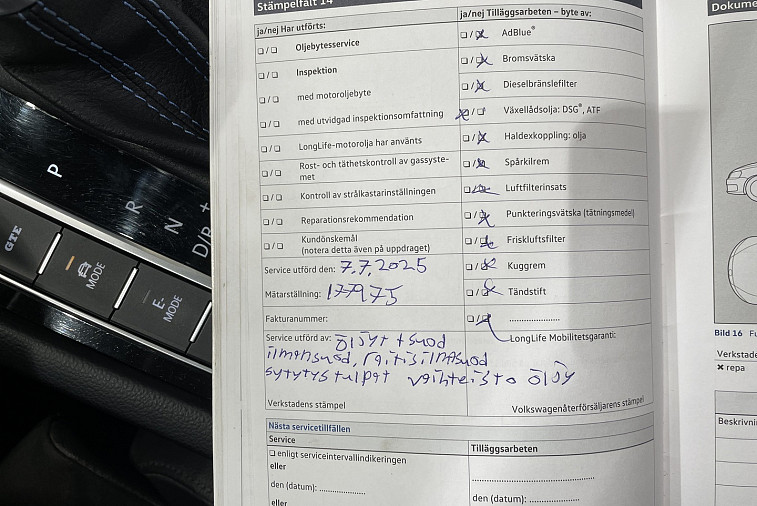 Stämpelfält 14
ja/nej Har utförts:
☐ / ☐ Oljebytesservice
☐ / ☐ Inspektion
☐ / ☐ med motoroljebyte
☐ / ☐ med utvidgad inspektionsomfattning
☐ / ☐ LongLife-motorolja har använts
☐ / ☐ Rost- och täthetskontroll av gassyste-
met
☐ / ☐ Kontroll av strålkastarinställningen
☐ / ☐ Reparationsrekommendation
☐ / ☐ Kundönskemål
(notera detta även på uppdraget)
Service utförd den: 7.7.2025
Mätarställning: 177975
Fakturanummer:
ja/nej Tilläggsarbeten – byte av:
☐ / ☒ AdBlue®
☐ / ☒ Bromsvätska
☐ / ☒ Dieselbränslefilter
☒ / ☐ Växellådsolja: DSG®, ATF
☐ / ☒ Haldexkoppling: olja
☐ / ☒ Spårkilrem
☐ / ☒ Luftfilterinsats
☐ / ☒ Punkteringsvätska (tätningsmedel)
☐ / ☒ Friskluftsfilter
☐ / ☒ Kuggrem
☐ / ☒ Tändstift
☐ / ☒ ....................
LongLife Mobilitetsgaranti:
Service utförd av: öljyt + suod
ilmansuod, raitisilmasuod
sytytystulpat vaihteisto öljy
Verkstadens stämpel
Volkswagenåterförsäljarens stämpel
Nästa servicetillfällen
Service
☐ enligt serviceintervallindikeringen
eller
den (datum): ....................
eller
Tilläggsarbeten
....................
den (datum): ....................
Dokume
Bild 16 Fu
Verkstade
✖ repa
Beskrivnin
P
R
N
D/B
+
GTE
MODE
E-
MODE